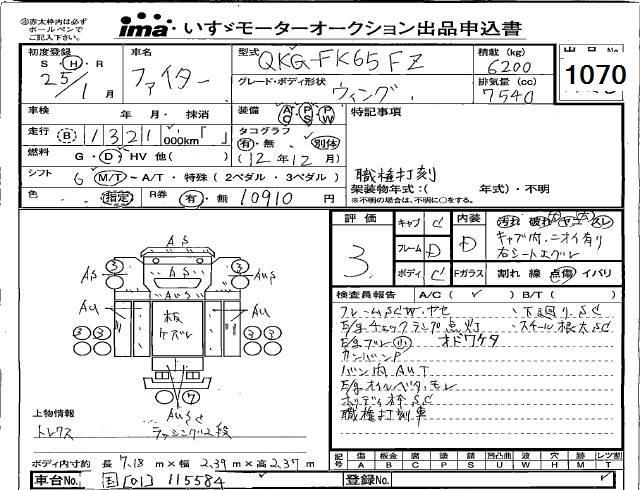 ㊟赤太枠内は必ず
ボールペンで
ご記入下さい。
ima いすゞモーターオークション出品申込書
初度登録 車名 型式 QKG-FK65FZ 積載 (kg) 6200 出品No. 1070
S・H・R ファイター グレード・ボディ形状 ウィング 排気量 (cc) 7540
25/1月
車検 年 月・抹消 装備 AC・PS・PW 特記事項
走行 B 1321 000km「 」 タコグラフ
有・無 別体
燃料 G・D・HV 他( ) (12年12月)
シフト 6 M/T・A/T・特殊(2ペダル・3ペダル) 職権打刻
架装物年式:( 年式)・不明
色 指定 R券 有・無 10910円 ※不明の場合は、不明に○をする。
評価 3 キャブ C 内装 D 汚れ 破れ ヤニ スレ
フレーム D キャブ内ニオイ有り
右シートエグレ
ボディ C Fガラス 割れ 線 点傷 イバリ
検査員報告 A/C( ✓ ) B/T( )
フレームSCW.ヤセ ・下廻りSC
E/gチェックランプ点灯 ・スチール根太SC
E/gブレ小 オドワケタ
カンバンP
バン内AUT
E/gオイルベタ.モレ
ボディ枠SC
職権打刻車
AS
3 3
AS AS AUS
AUS
AU 板ケズレ AU
2 2
7
AUSC
上物情報
トレクス ラッシング2段
記号 傷 板金 腐 塗 錆 凹凸曲 波 穴 跡 レツ割
A B C P S U W H M T
ボディ内寸約 長 7.18 m×幅 2.39 m×高 2.37 m
車台No. 国[01]115584 登録No.